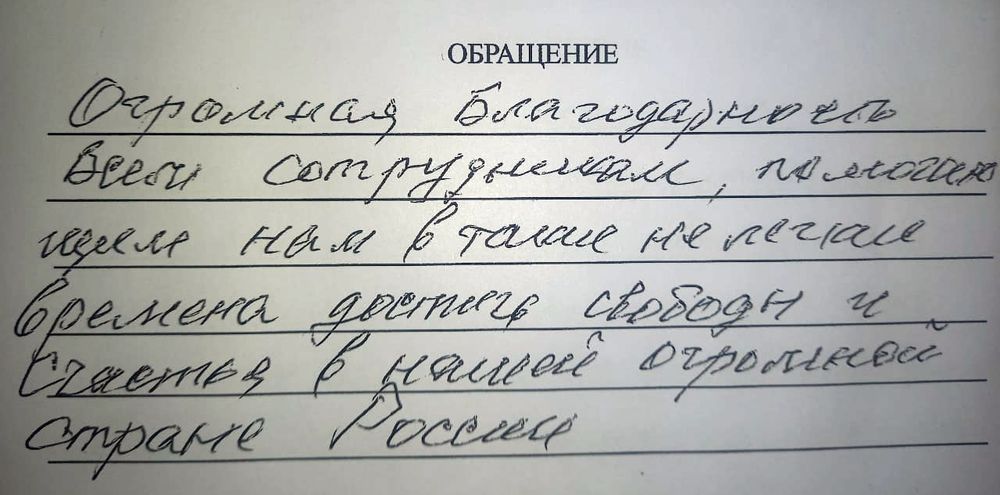 ОБРАЩЕНИЕ
Огромная Благодарность
всем сотрудникам, помогаю
щим нам в такие не легкие
времена достичь свободы и
счастья в нашей огромной
стране России